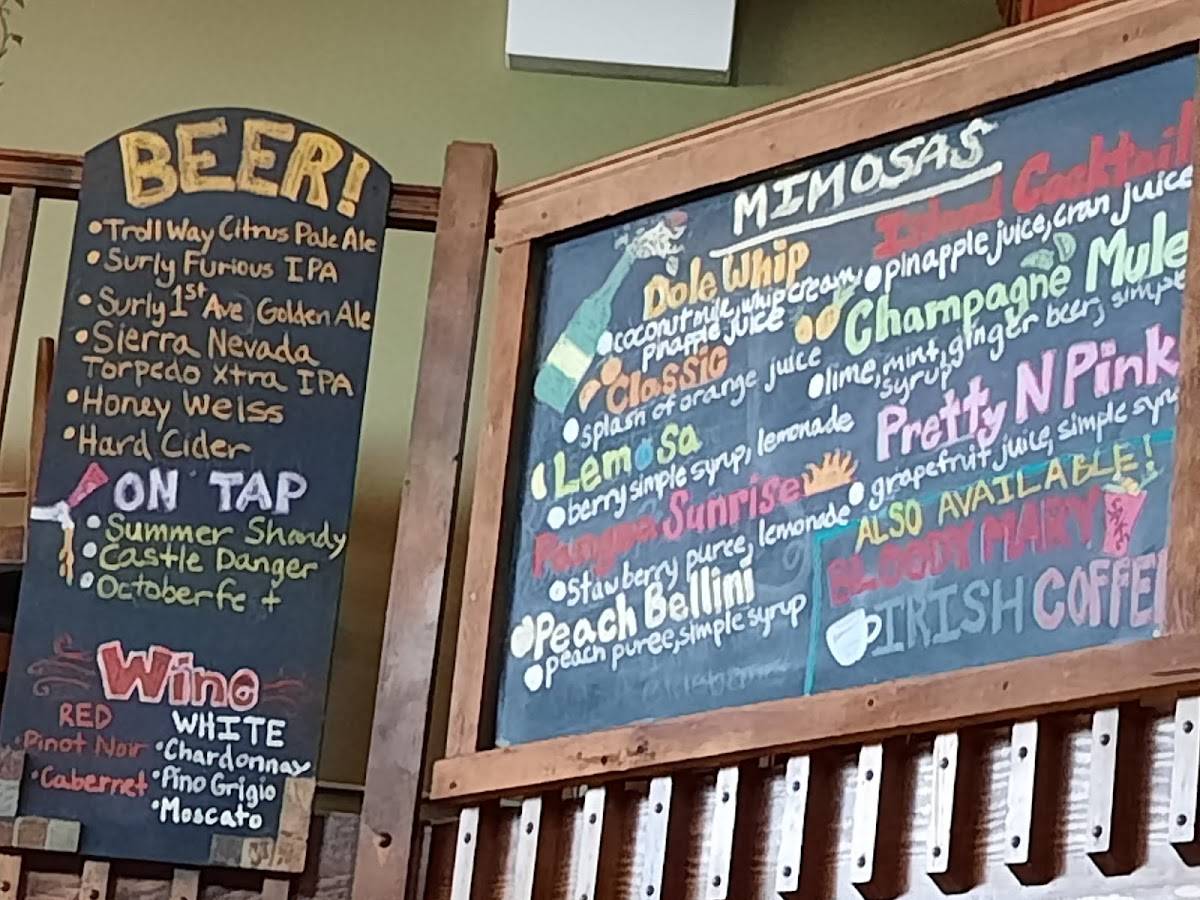 BEER!
•Troll Way Citrus Pale Ale
•Surly Furious IPA
•Surly 1st Ave Golden Ale
•Sierra Nevada
Torpedo Xtra IPA
•Honey Weiss
•Hard Cider
ON TAP
•Summer Shandy
•Castle Danger
•Octoberfe t
Wine
RED
•Pinot Noir
•Cabernet
WHITE
•Chardonnay
•Pino Grigio
•Moscato
MIMOSAS
Dole Whip
•coconut milk, whip cream,
pineapple juice
Classic
•splash of orange juice
Lemosa
•berry simple syrup, lemonade
Sunrise
•stawberry puree, lemonade
Peach Bellini
•peach puree, simple syrup
Island Cocktail
•pinapple juice, cran juice
Champagne Mule
•lime, mint, ginger beer, simple
syrup
Pretty N Pink
•grapefruit juice, simple syru
ALSO AVAILABLE!
BLOODY MARY
IRISH COFFEE